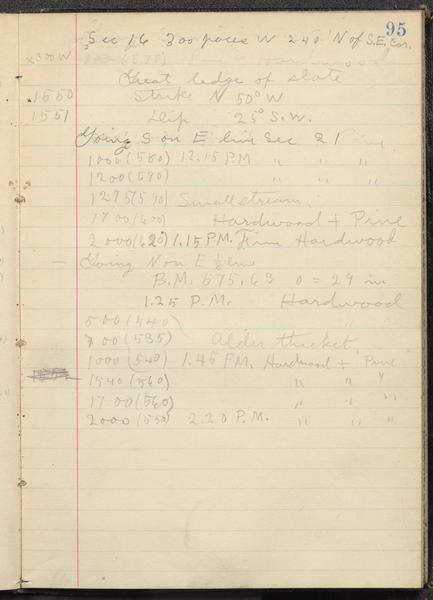 95
Sec 16 300 paces W 240 N of S.E. Cor.
x300W
Great ledge of slate
1550 Strike N 50° W
1551 Dip 25° S.W.
Going S on E line Sec 21 Pine
1000 (580) 12.15 P.M. " " "
1200 (590) " " "
1275 (590) Small stream.
1700 (600) Hardwood + Pine
2000 (620) 1.15 P.M. Hardwood
— Going N on E 1/8 line
B.M. 575.63 0 = 29 in
1.25 P.M. Hardwood
500 (540) "
700 (535) Alder thicket
1000 (540) 1.45 P.M. Hardwood + Pine
1540 (560) " " "
1700 (560) " " "
2000 (550) 2.20 P.M. " " "